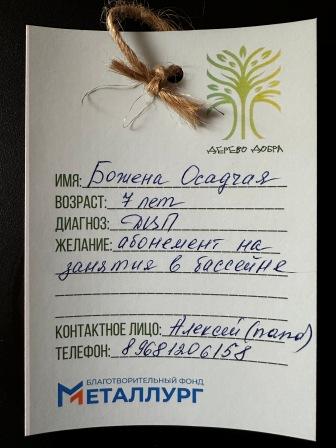 ДЕРЕВО ДОБРА
ИМЯ: Божена Осадчая
ВОЗРАСТ: 7 лет
ДИАГНОЗ: ДЦП
ЖЕЛАНИЕ: абонемент на
занятия в бассейне
КОНТАКТНОЕ ЛИЦО: Алексей (папа)
ТЕЛЕФОН: 89681206158
БЛАГОТВОРИТЕЛЬНЫЙ ФОНД
МЕТАЛЛУРГ